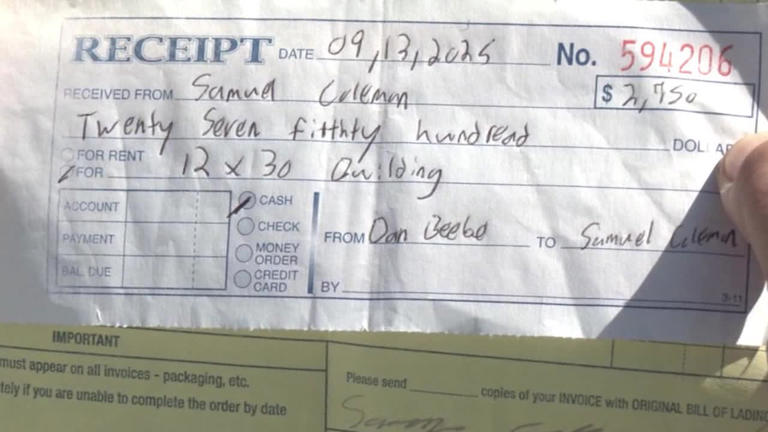 RECEIPT DATE 09,13,2025 No. 594206
RECEIVED FROM Samuel Coleman $ 2,750
Twenty Seven fifthty hundread DOLLAR
FOR RENT
FOR 12 x 30 Building
ACCOUNT
PAYMENT
BAL. DUE
CASH
CHECK
MONEY ORDER
CREDIT CARD
FROM Dan Beebe TO Samuel Coleman
BY
3-11
IMPORTANT
must appear on all invoices - packaging, etc.
tely if you are unable to complete the order by date
Please send copies of your INVOICE with ORIGINAL BILL OF LADING